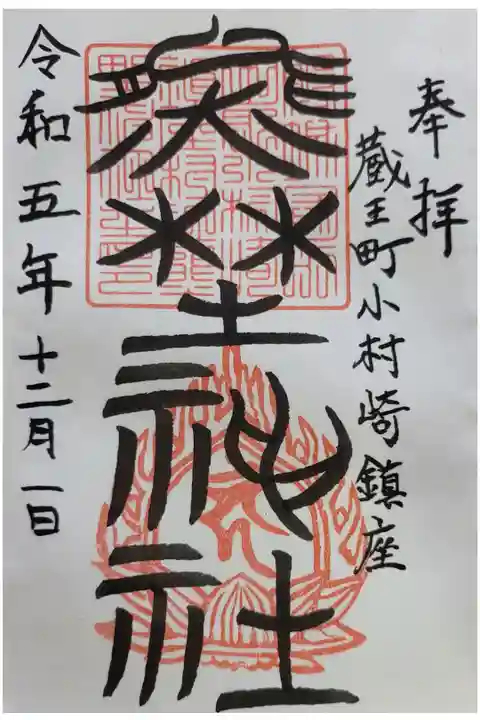 奉拝
蔵王町小村崎鎮座
熊埜神社
令和五年十二月一日